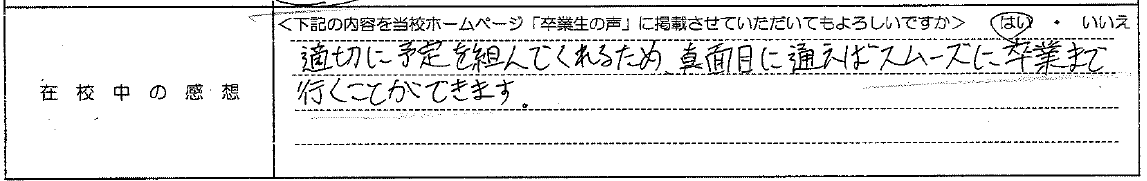 <下記の内容を当校ホームページ「卒業生の声」に掲載させていただいてもよろしいですか> はい ・ いいえ
在校中の感想
適切に予定を組んでくれるため、真面目に通えばスムーズに卒業まで
行くことができます。